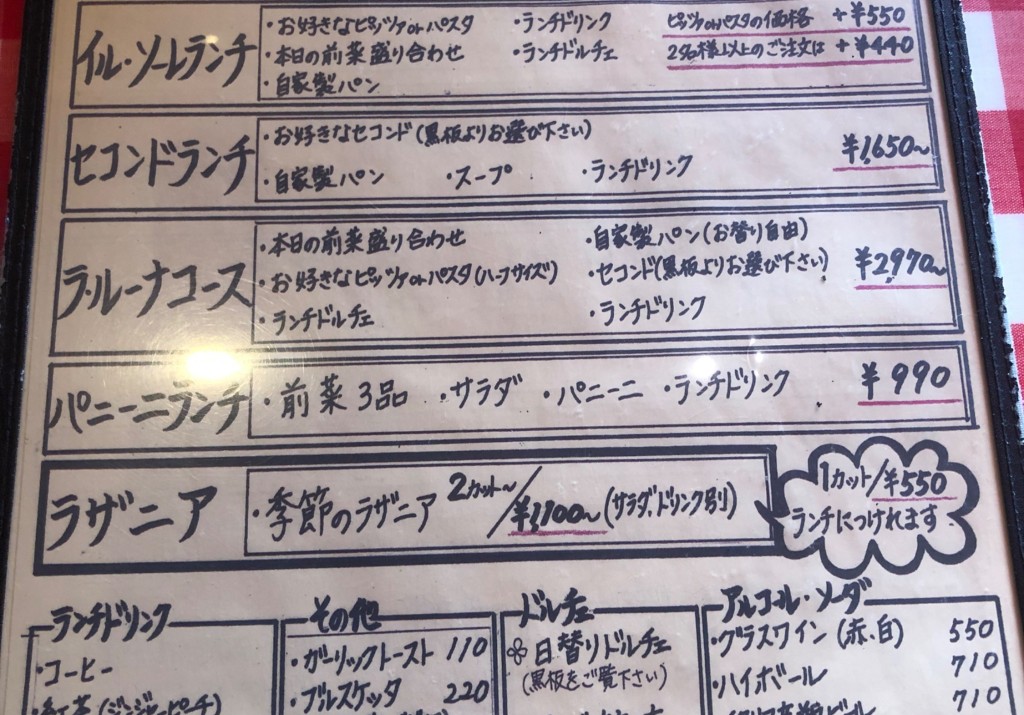 イル・ソーレランチ
・お好きなピッツァorパスタ ・ランチドリンク ピッツァorパスタの価格 +¥550
・本日の前菜盛り合わせ ・ランチドルチェ 2名様以上のご注文は +¥440
・自家製パン
セコンドランチ
・お好きなセコンド(黒板よりお選び下さい)
・自家製パン ・スープ ・ランチドリンク ¥1,650~
ラ・ルーナコース
・本日の前菜盛り合わせ ・自家製パン(お替り自由)
・お好きなピッツァorパスタ(ハーフサイズ) ・セコンド(黒板よりお選び下さい) ¥2,970~
・ランチドルチェ ・ランチドリンク
パニーニランチ ・前菜3品 ・サラダ ・パニーニ ・ランチドリンク ¥990
ラザニア ・季節のラザニア 2カット~/¥1,100~(サラダ、ドリンク別)
1カット/¥550
ランチにつけれます
ランチドリンク
・コーヒー
・紅茶(ジンジャーピーチ)
その他
・ガーリックトースト 110
・ブルスケッタ 220
ドルチェ
日替りドルチェ
(黒板をご覧下さい)
アルコール・ソーダ
・グラスワイン(赤、白) 550
・ハイボール 710
710